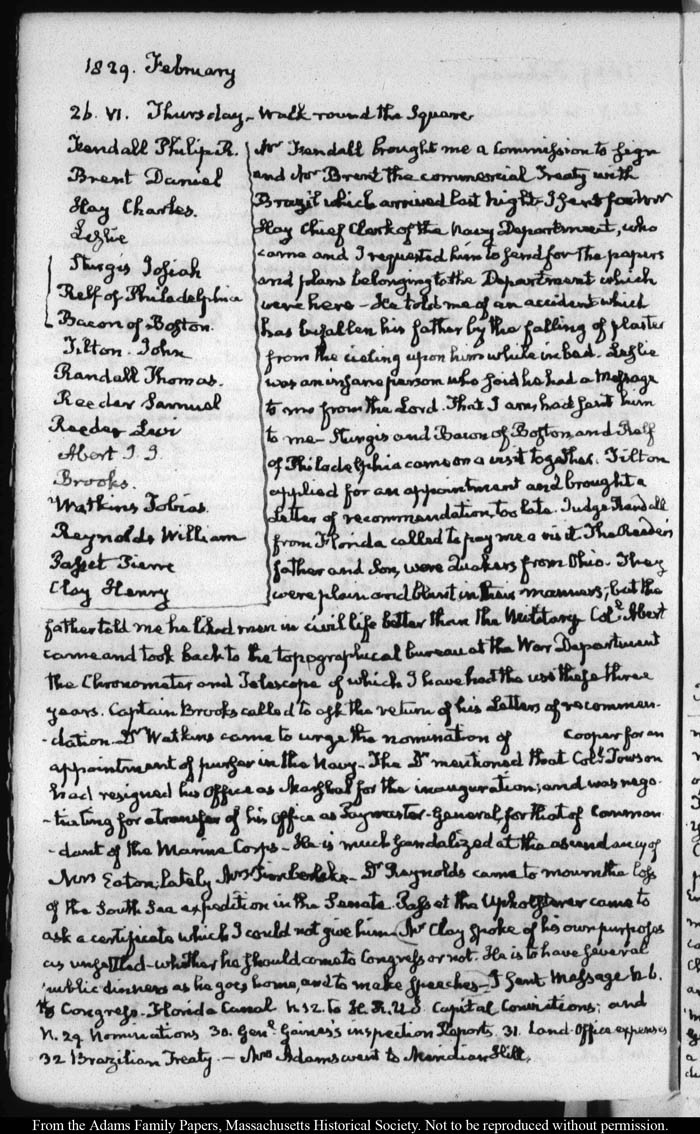 1829. February
26. VI. Thursday - Walk round the Square.
Kendall Philip R.
Brent Daniel
Hay Charles.
Leslie
Sturgis Josiah
Relf of Philadelphia
Bacon of Boston.
Tilton. John
Randall Thomas.
Reeder Samuel
Reeder Levi
Abert J. J.
Brooks.
Watkins Tobias.
Reynolds William
Passet Pierre
Clay Henry
Mr Kendall brought me a Commission to sign
and Mr Brent the commercial Treaty with
Brazil which arrived last Night. I sent for Mr
Hay Chief Clerk of the Navy Department, who
came and I requested him to send for the papers
and plans belonging to the Department which
were here - He told me of an accident which
has befallen his father by the falling of plaster
from the cieling upon him while in bed. Leslie
was an insane person who said he had a Message
to me from the Lord. That I am, had sent him
to me - Sturgis and Bacon of Boston and Relf
of Philadelphia came on a visit together. Tilton
applied for an appointment and brought a
Letter of recommendation, too late. Judge Randall
from Florida called to pay me a visit. The Reeders
father and Son, were Quakers from Ohio. They
were plain and blunt in their manners; but the
father told me he liked men in civil life better than the Military. Coll. Abert
came and took back to the topographical bureau at the War Department
the Chronometer and Telescope of which I have had the use these three
years. Captain Brooks called to ask the return of his Letters of recommen-
-dation. Dr Watkins came to urge the nomination of Cooper for an
appointment of purser in the Navy - The Dr mentioned that Coll. Towson
had resigned his Office as Marshal for the inauguration; and was nego-
-tiating for a transfer of his Office as Paymaster-General, for that of Comman-
-dant of the Marine Corps - He is much scandalized at the ascendancy of
Mrs Eaton, lately Mrs Timberlake - Dr Reynolds came to mourn the loss
of the South Sea expedition in the Senate. Passet the Upholsterer came to
ask a certificate which I could not give him. Mr Clay spoke of his own purposes
as unsettled - whether he should come to Congress or not. He is to have several
public dinners as he goes home, and to make Speeches - I sent Message N. 6.
to Congress. Florida Canal N 12 to H. R. U.S. Capital Convictions; and
N. 29 Nominations 30. Genl. Gaines's inspection Reports. 31. Land Office expenses
32 Brazilian Treaty. - Mrs Adams went to Meridian Hill.
From the Adams Family Papers, Massachusetts Historical Society. Not to be reproduced without permission.